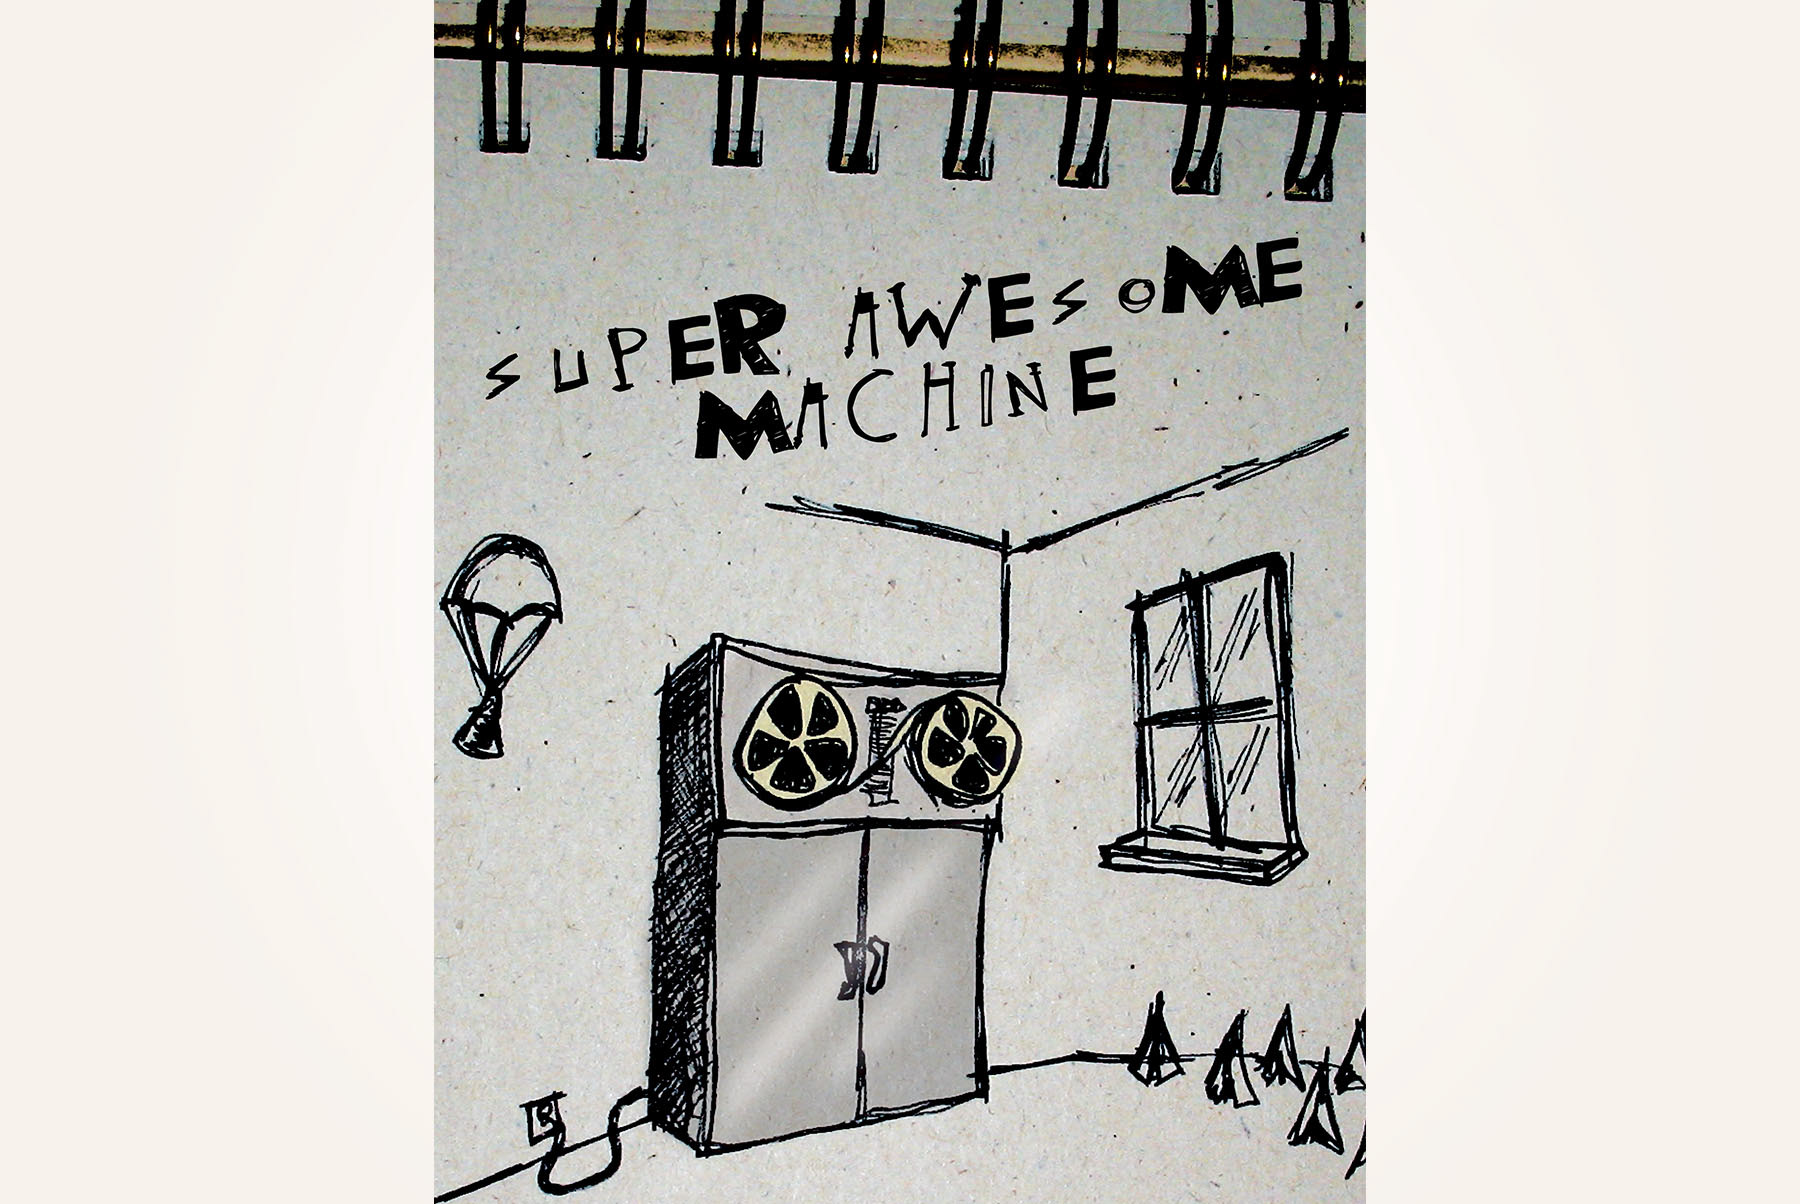 SUPER AWESOME
MACHINE